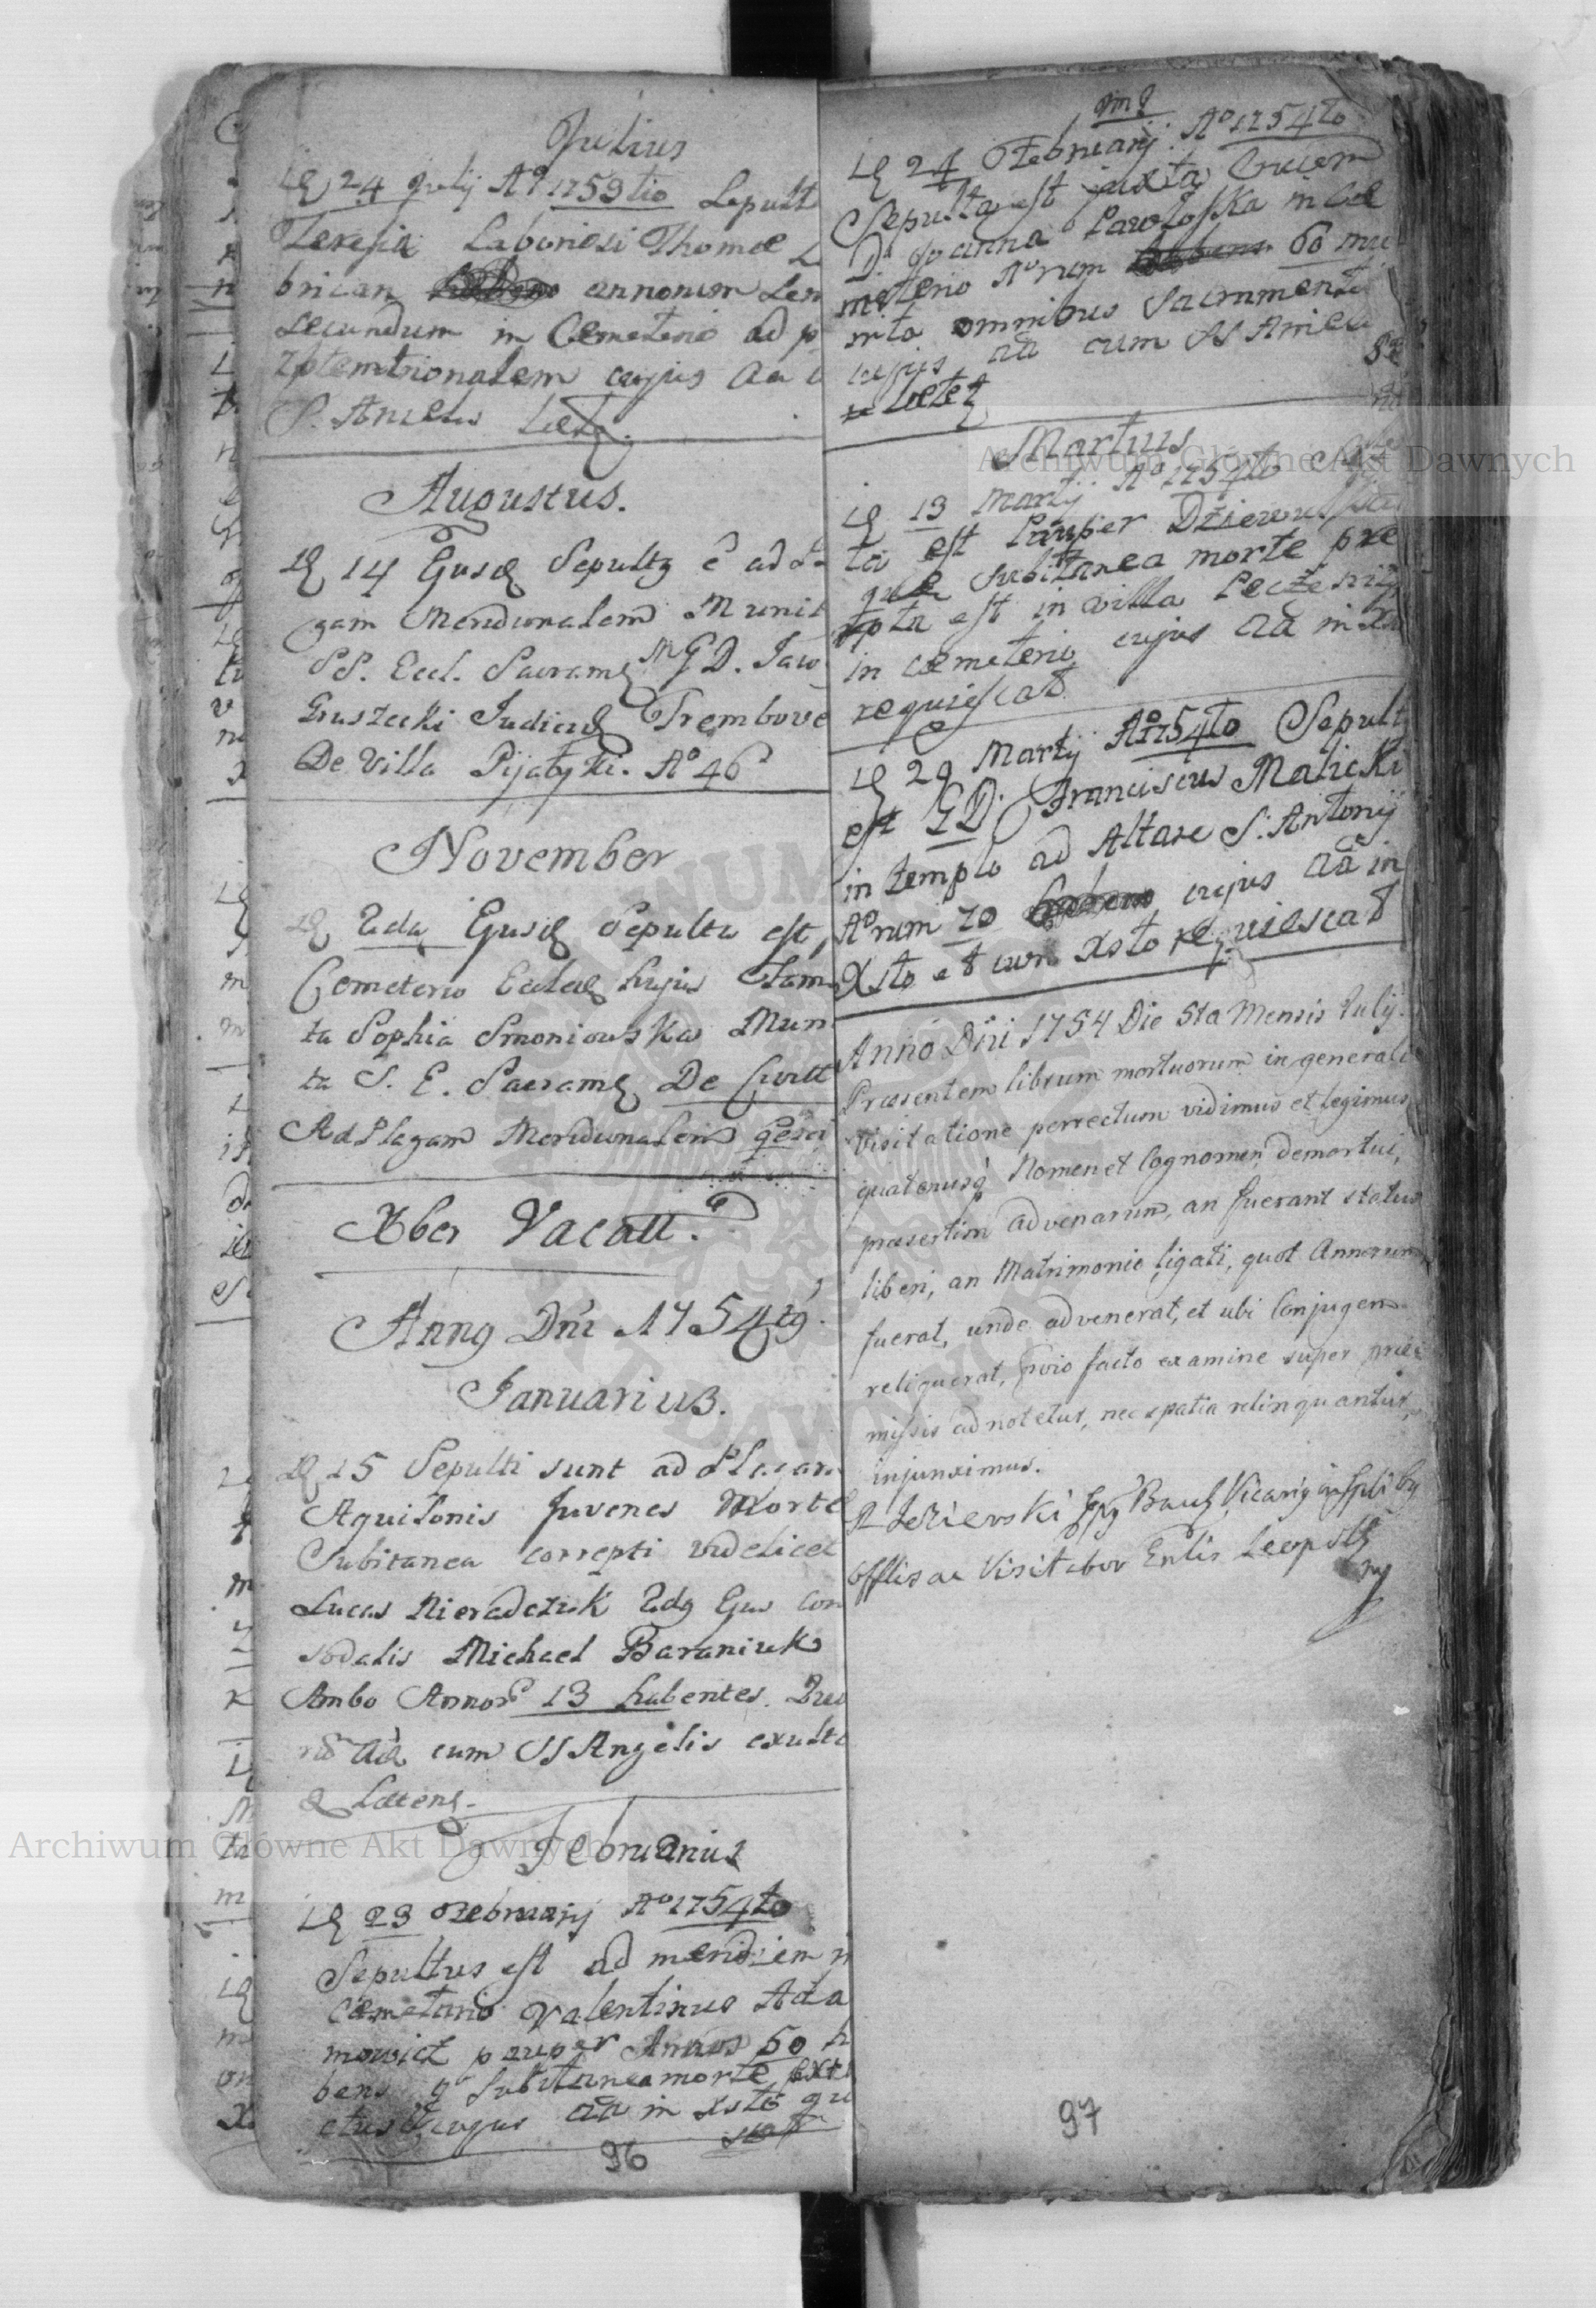 Julius
24 Julij Aº 1753tio Sepult
Teresia Laboriosi Thomæ L
brican annorum Sen
Secundum in Cemeterio ad p
zptemtrionalem cujus aa c
S. Anielus Læt
Augustus.
14 Ejusd Sepultg ê ad Pl
gam Meridionalem Munit
SS. Eccl. Sacram MGD. Jaw
Gruszecki Judicis Trembove
De Villa Pijatyki. Aº 46
November
2da Ejusd Sepulta est,
Cemeterio Eccleæ hujus Fam
ta Sophia Smoniowska Mun
ta S. E. Sacram De Civitt
Ad Plagam Meridionalem
Xber Vacatt.
Anng Dni 1754tg.
Januarius.
15 Sepulti sunt ad Plagam
Aquilonis Juvenes Morte
Subitanea correpti videlicet
Lucas Nieradczuk 2dg Ejus Con
sodalis Michael Baraniuk
Ambo Annor 13 habentes. Quo
rū aā cum SS Angelis exulta
& Lætent.
Februarius
23 Februarij Aº 1754to
Sepultus est ad meridiem in
Cæmeterio Valentinus Ada
mowicz pauper Annos 50 h
bens q Subitanea morte ext
ctus cujus aā in Xsto qu
scat
96
24 Februarij Aº 1754to
Sepulta est juxta Crucem
D. Joanna Pawloska in Cæ
meterio Aºrum 60 mu
nita omnibus Sacramenti
cujus aā cum SS Aniela
Lætet
Martius
13 Martij Aº 1754to
ta est Pauper Dziewulska
quæ Subitanea morte pre
pta est in villa Peczeniz
in cæmeterio cujus aā in X
requiescat
29 Martij Aº 1754to Sepult
est GD. Franciscus Malicki
in templo ad Altare S. Antonij
Aºrum 70 cujus aā in
Xsto et cum Xsto requiescat
Anno Dni 1754 Die 5ta Mensis Julij.
Præsentem librum mortuorum in generali
Visitatione perrectum vidimus et legimus
quatenusq Nomen et Cognomen demortui,
præsertim advenarum, an fuerant status
liberi, an Matrimonio ligati, quot Annorum
fuerat, unde advenerat, et ubi Conjugem
reliquerat, prvio facto examine super præ
missis adnotetur, nec spatia relinquantur,
injunximus.
Offlis ac Visitator Gnlis Leopol
97
Archiwum Główne Akt Dawnych
Archiwum Główne Akt Dawnych